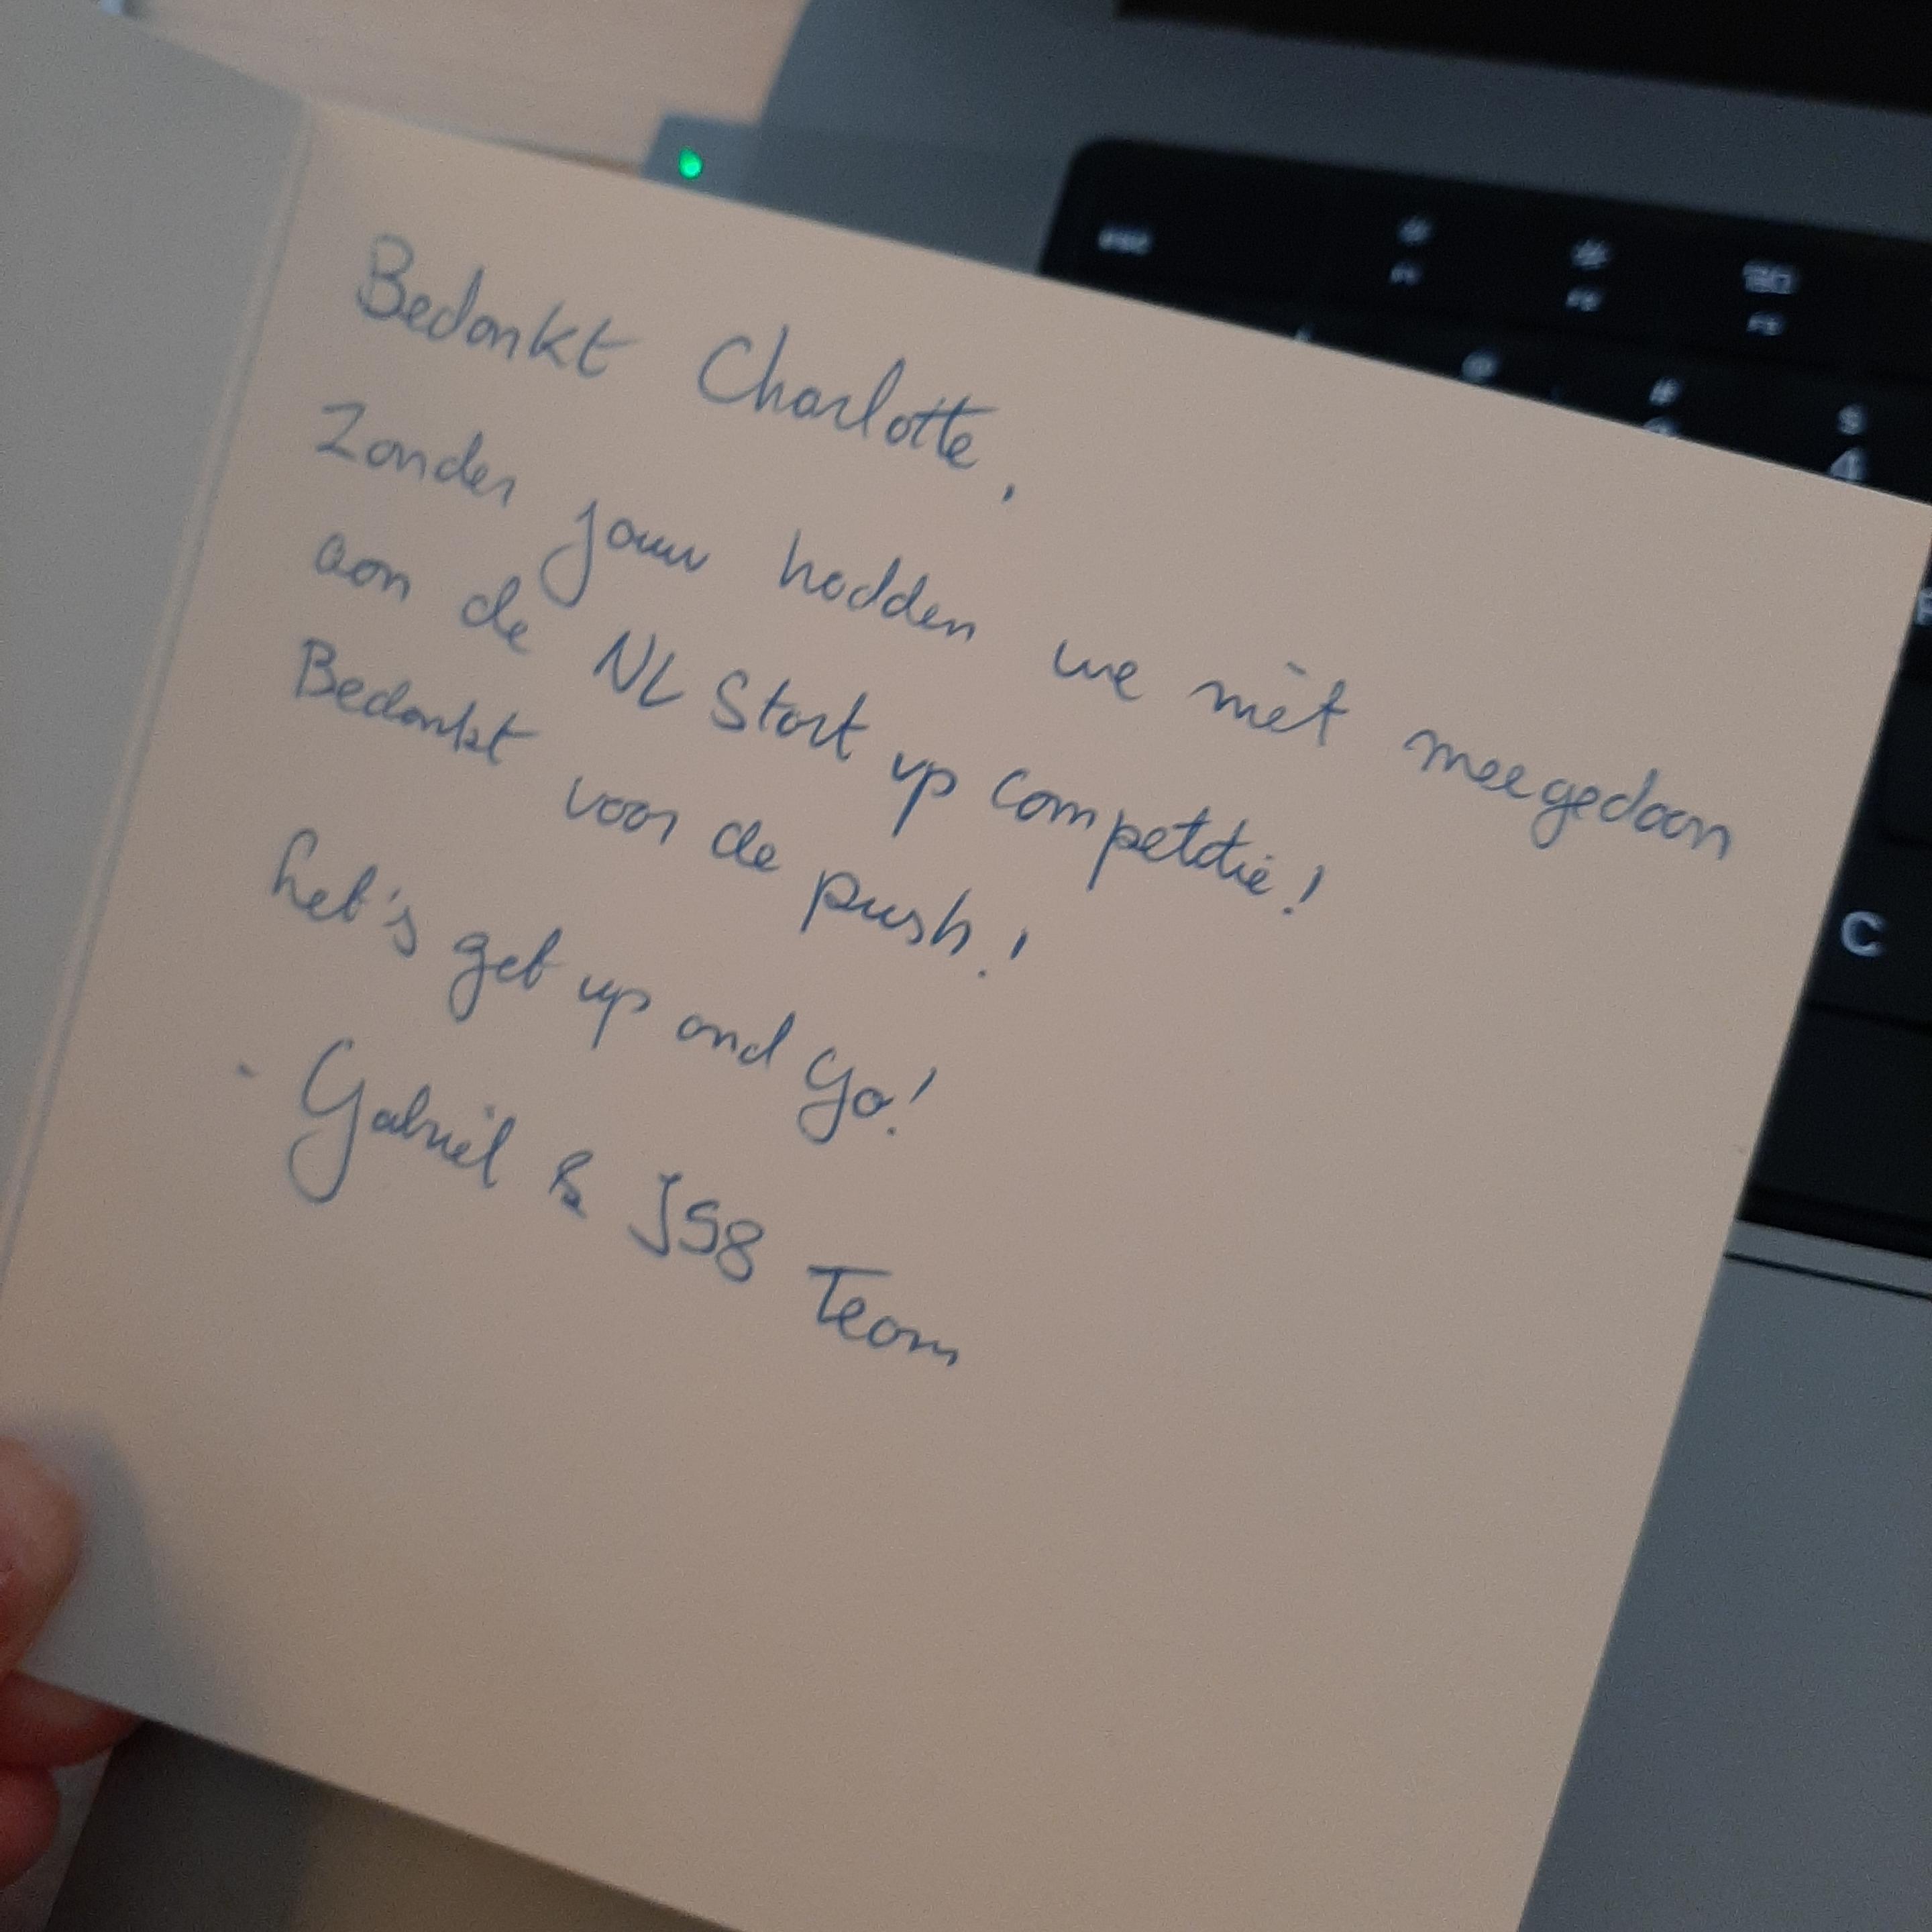 Bedankt Charlotte,
Zonder jouw hadden we niet meegedaan
aan de NL Start up competitie!
Bedankt voor de push!
Let's get up and go!
- Gabriël & JS8 Team
esc
@
#
$
4
C